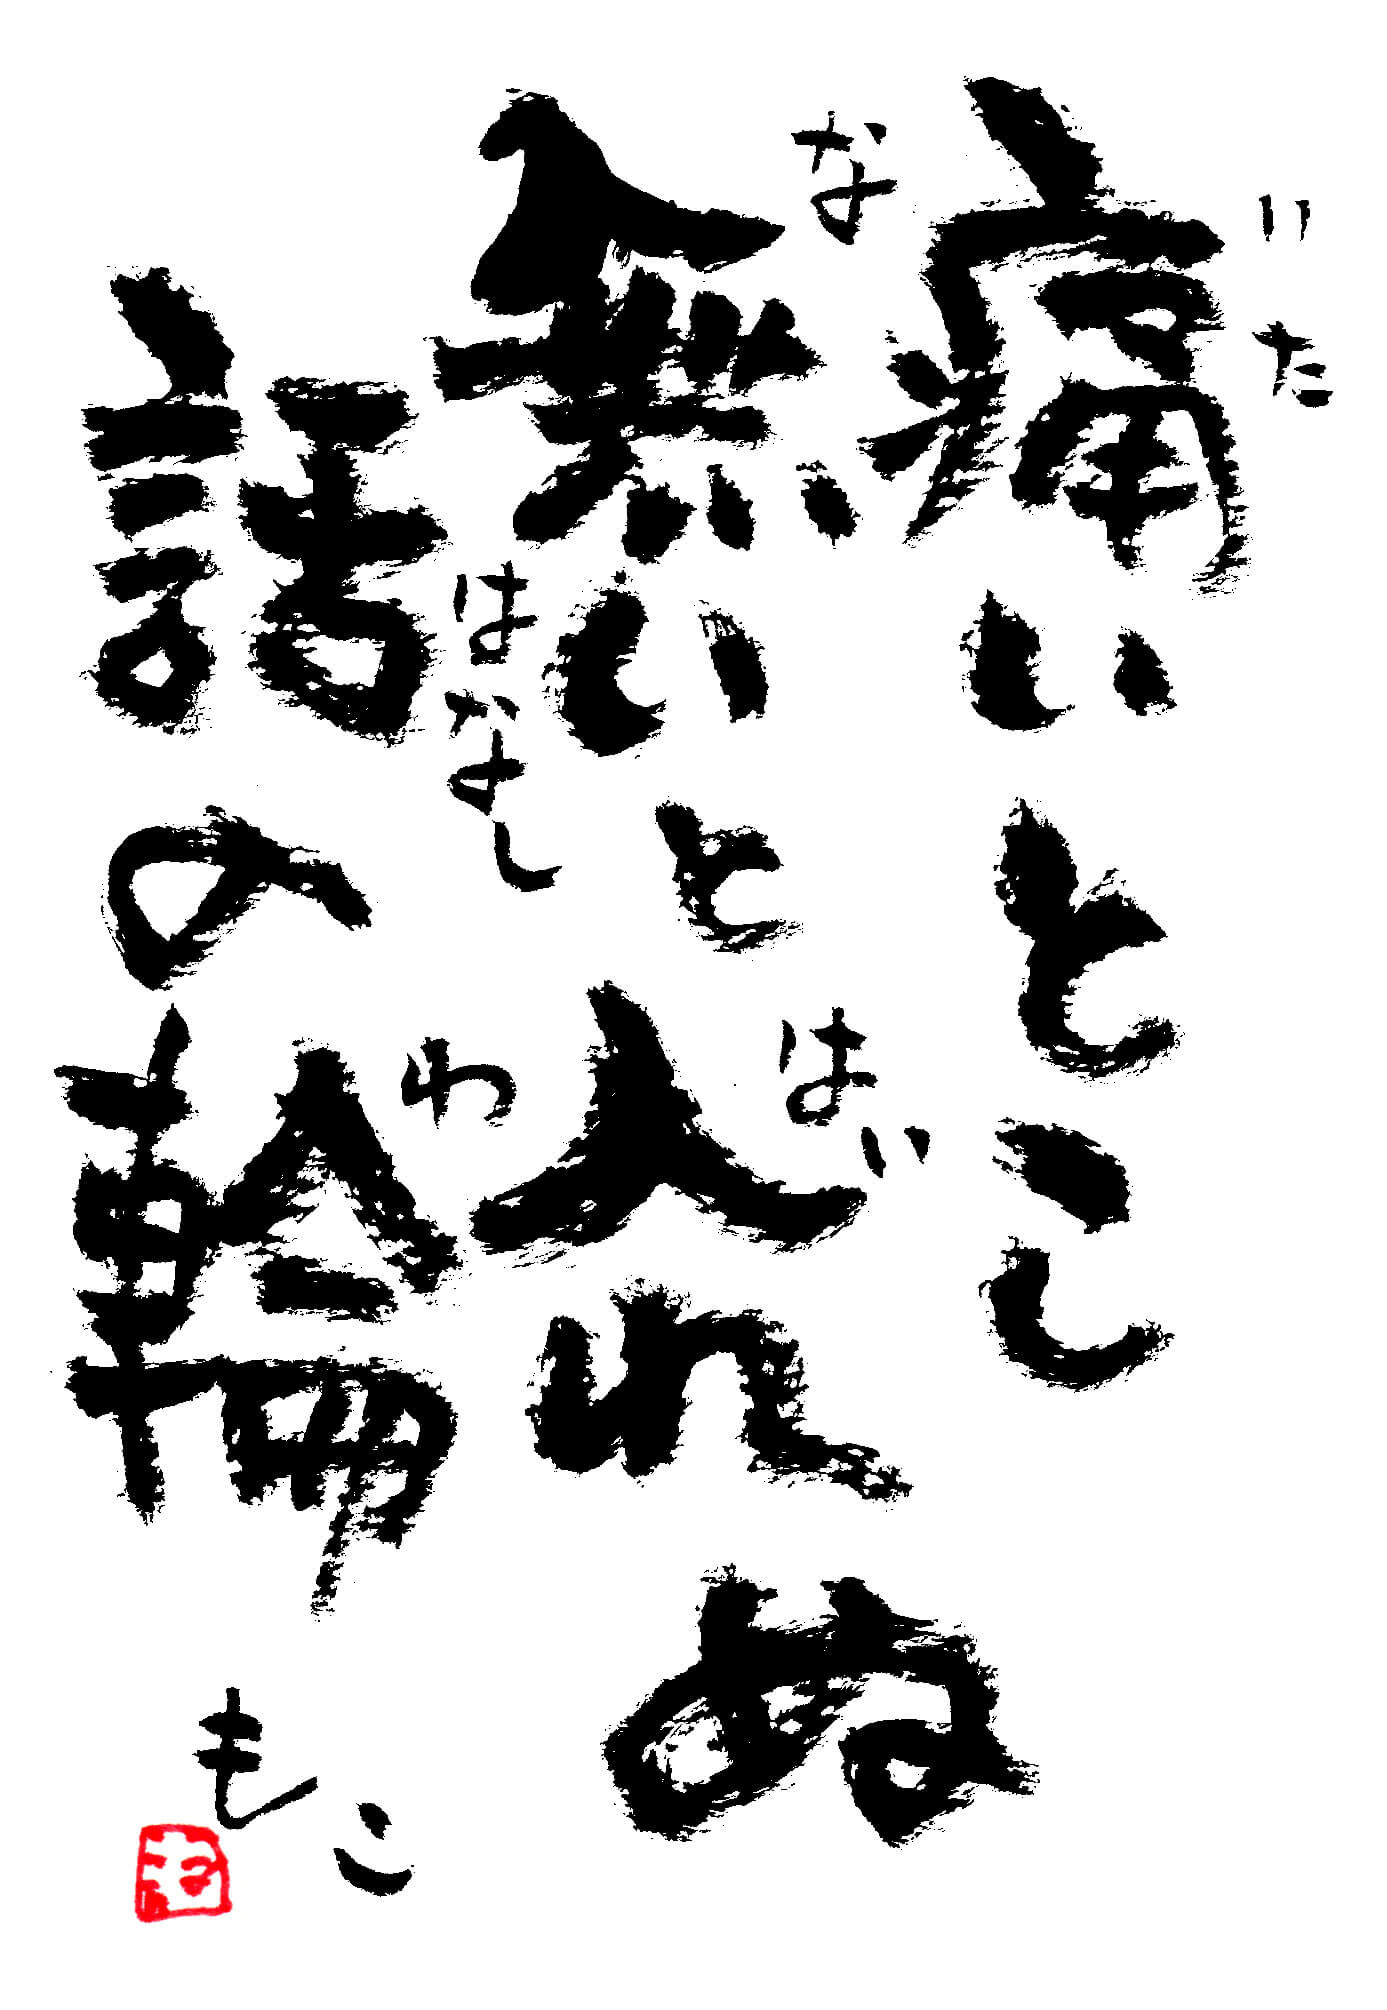 痛いとこ
いた
無いと入れぬ
な
はい
話の輪
はなし
わ
もこ